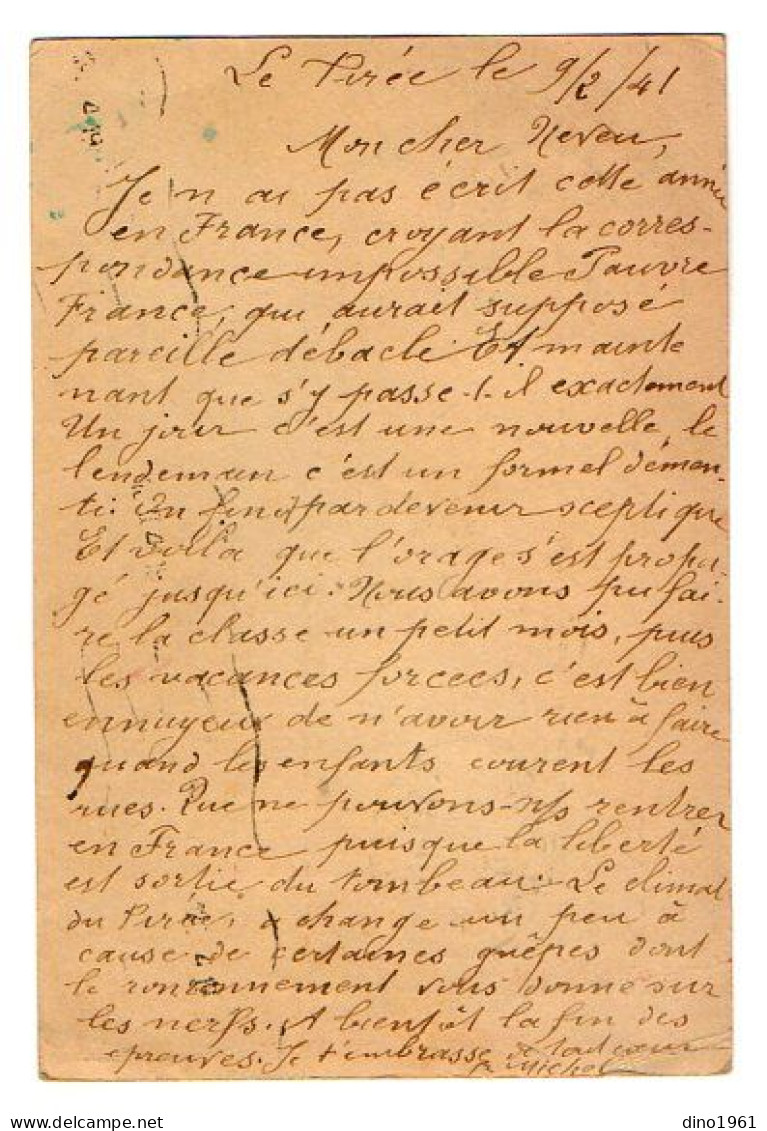 Le Pirée le 9/2/41
Mon cher Neveu,
Je n ai pas écrit cette année
en France, croyant la corres-
pondance impossible Pauvre
France, qui aurait supposé
pareille débacle. Et mainte
nant que s'y passe-t-il exactement
Un jour c'est une nouvelle, le
lendemain c'est un formel démen-
ti. On finit par devenir sceptique
Et voila que l'orage s'est propa-
gé jusqu'ici. Nous avons pu fai-
re la classe un petit mois, puis
les vacances forcées, c'est bien
ennuyeux de n'avoir rien à faire
quand les enfants courent les
rues. Que ne pouvons-ns rentrer
en France puisque la liberté
est sortie du tombeau. Le climat
du Pirée, a changé un peu à
cause de certaines guêpes dont
le ronronnement vous donne sur
les nerfs. A bientôt la fin des
épreuves. Je t'embrasse de tout coeur
Michel
dino1961